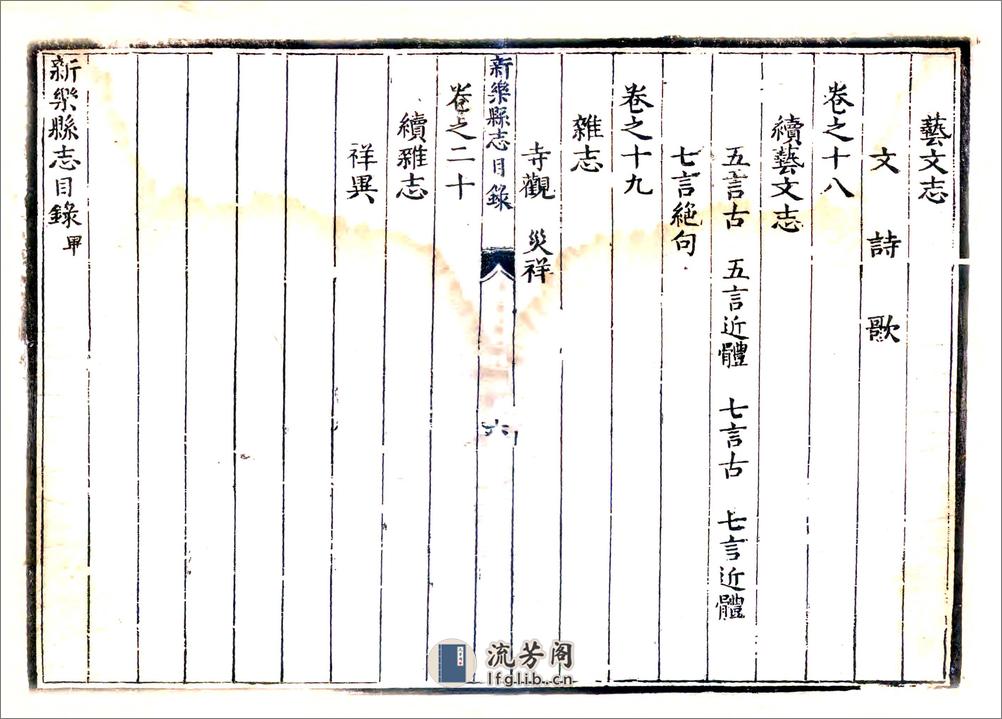 藝文志
文 詩 歌
卷之十八
續藝文志
五言古 五言近體 七言古 七言近體
七言絕句
卷之十九
雜志
寺觀 災祥
新樂縣志目錄 六
卷之二十
續雜志
祥異
新樂縣志目錄畢
流芳阁
lfglib.cn